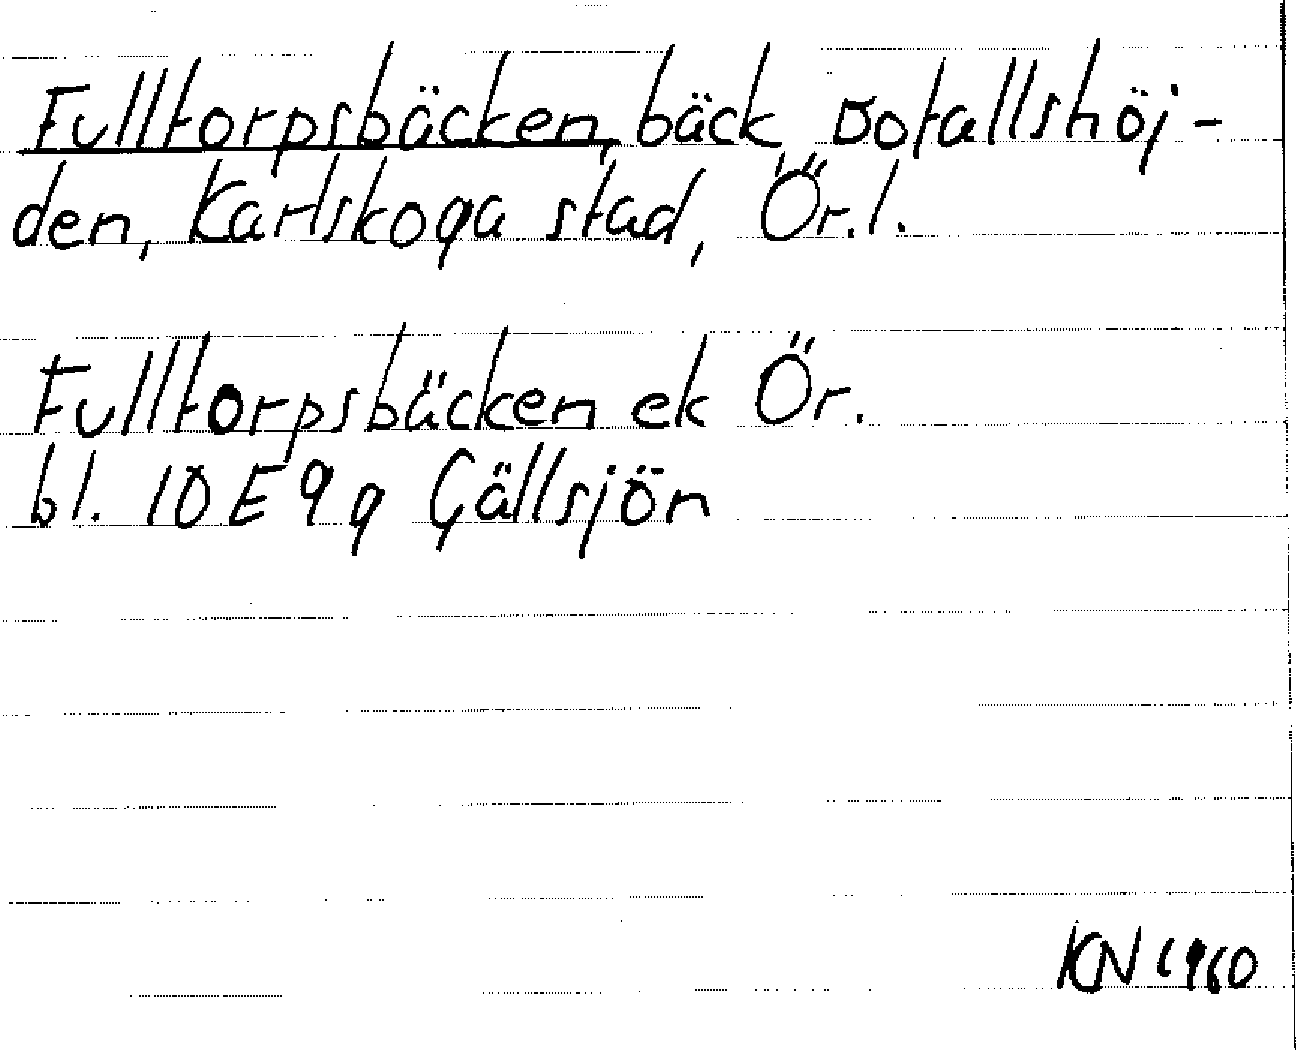 Fulltorpsbäcken, bäck Dotallshöj-
den, Karlskoga stad, Ör.l.
Fulltorpsbäcken ek Ör.
bl. 10E 9g Gällsjön
KN 1960